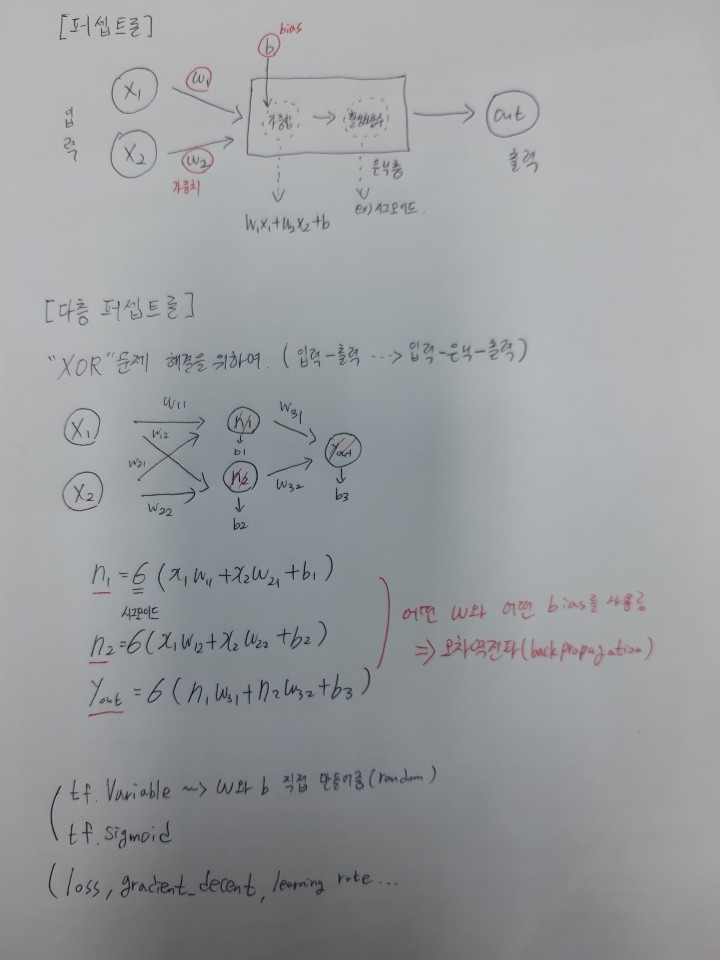 [퍼셉트론]
bias
b
x1 w1 가중합 → 활성화함수 → out
입력
x2 w2
가중치
은닉층 출력
w1x1+w2x2+b
ex) 시그모이드.
[다층 퍼셉트론]
"XOR" 문제 해결을 위하여. (입력-출력 ⋯> 입력-은닉-출력)
x1 w11 n1 w31
w12 b1 yout
w21
x2 w22 n2 w32 b3
b2
n1 = 6 (x1w11+x2w21+b1)
시그모이드
n2 = 6(x1w12+x2w22+b2)
yout = 6 (n1w31+n2w32+b3)
어떤 w와 어떤 bias를 사용?
⇒ 오차역전파(backpropagation)
tf.Variable ~> w와 b 직접 만들어줌(random)
tf.sigmoid
(loss, gradient_decent, learning rate...